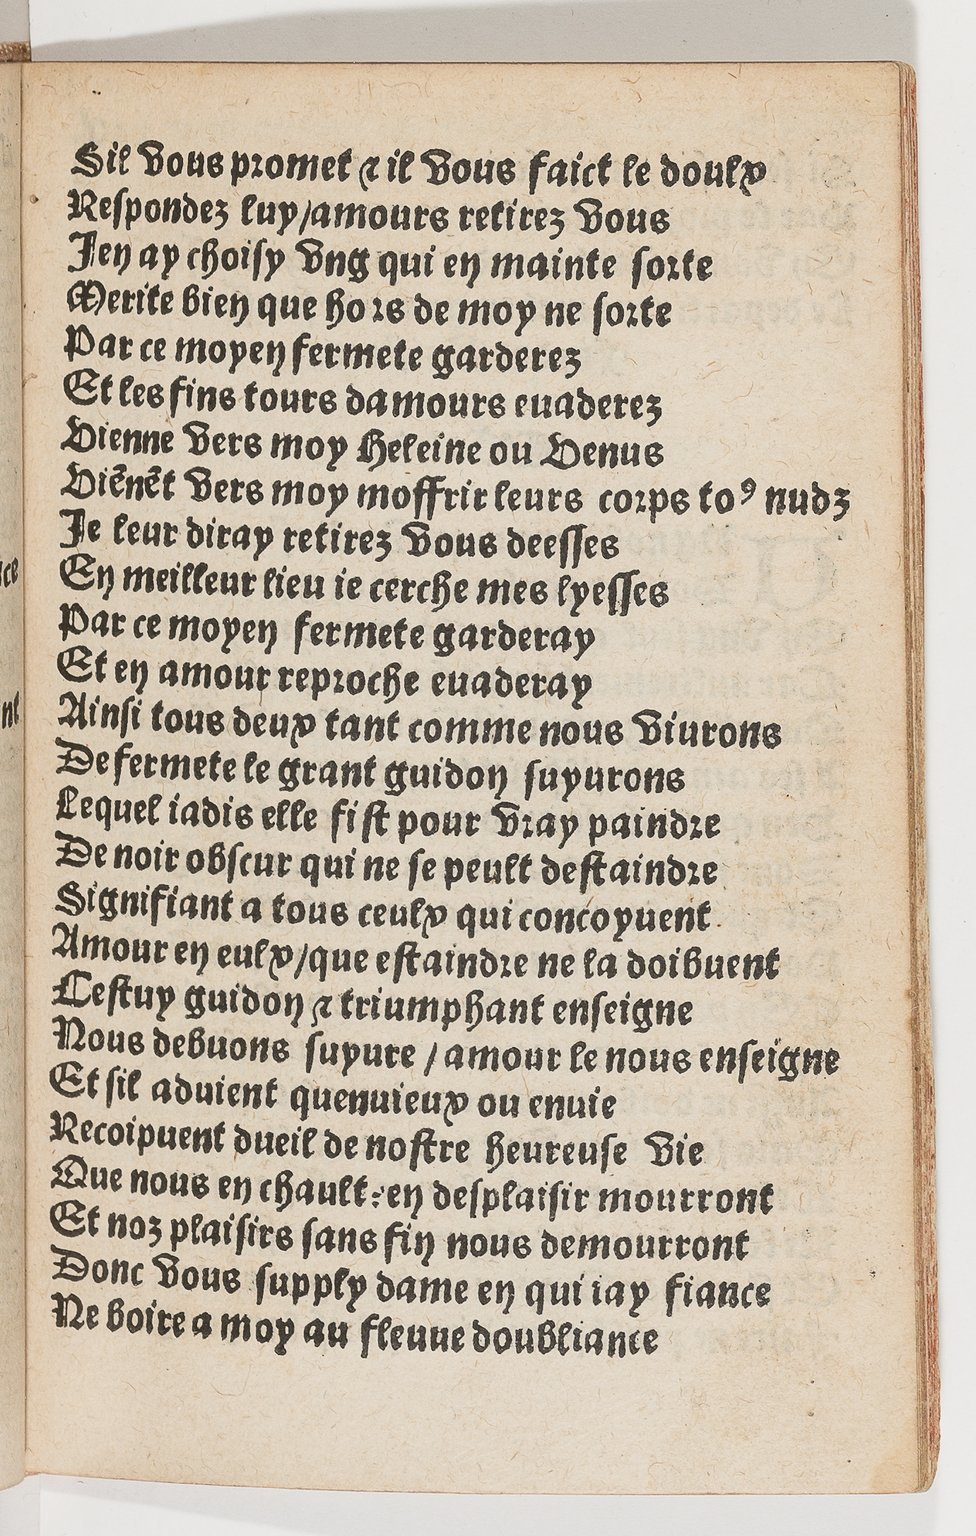 Sil vous promet ⁊ il vous faict le doulx
Respondez luy/amours retirez vous
Jen ay choisy vng qui en mainte sorte
Merite bien que hors de moy ne sorte
Par ce moyen fermete garderez
Et les fins tours damours euaderez
Vienne vers moy Heleine ou Venus
Viẽnẽt vers moy moffrir leurs corps toꝰ nudz
Je leur diray retirez vous deesses
En meilleur lieu ie cerche mes lyesses
Par ce moyen fermete garderay
Et en amour reproche euaderay
Ainsi tous deux tant comme nous viurons
De fermete le grant guidon suyurons
Lequel iadis elle fist pour vray paindre
De noir obscur qui ne se peult destaindre
Signifiant a tous ceulx qui concoyuent
Amour en eulx/que estaindre ne la doibuent
Cestuy guidon ⁊ triumphant enseigne
Nous debuons suyure / amour le nous enseigne
Et sil aduient quenuieux ou enuie
Recoipuent dueil de nostre heureuse vie
Que nous en chault: en desplaisir mourront
Et noz plaisirs sans fin nous demourront
Donc vous supply dame en qui iay fiance
Ne boire a moy au fleuue doubliance